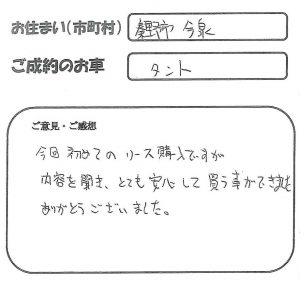 お住まい(市町村) 秦野市 今泉
ご成約のお車 タント
ご意見・ご感想
今回初めてのリース購入ですが
内容を聞き、とても安心して買う事ができました
ありがとうございました。